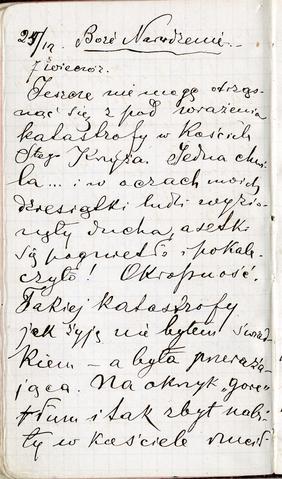 25/12. Boże Narodzenie.
7 wieczór.
Jeszcze nie mogę otrzą-
snąć się z pod wrażenia
katastrofy w kościele
Stego Krzyża. Jedna chwi-
la... i w oczach moich
dziesiątki ludzi wyzio-
nęły ducha, a setki
się pogniotło i pokale-
czyło! Okropność.
Takiej katastrofy
jak żyję nie byłem świad-
kiem – a była przeraża-
jąca. Na okrzyk „gore"
tłum i tak zbyt nabi-
ty w kościele rzucił